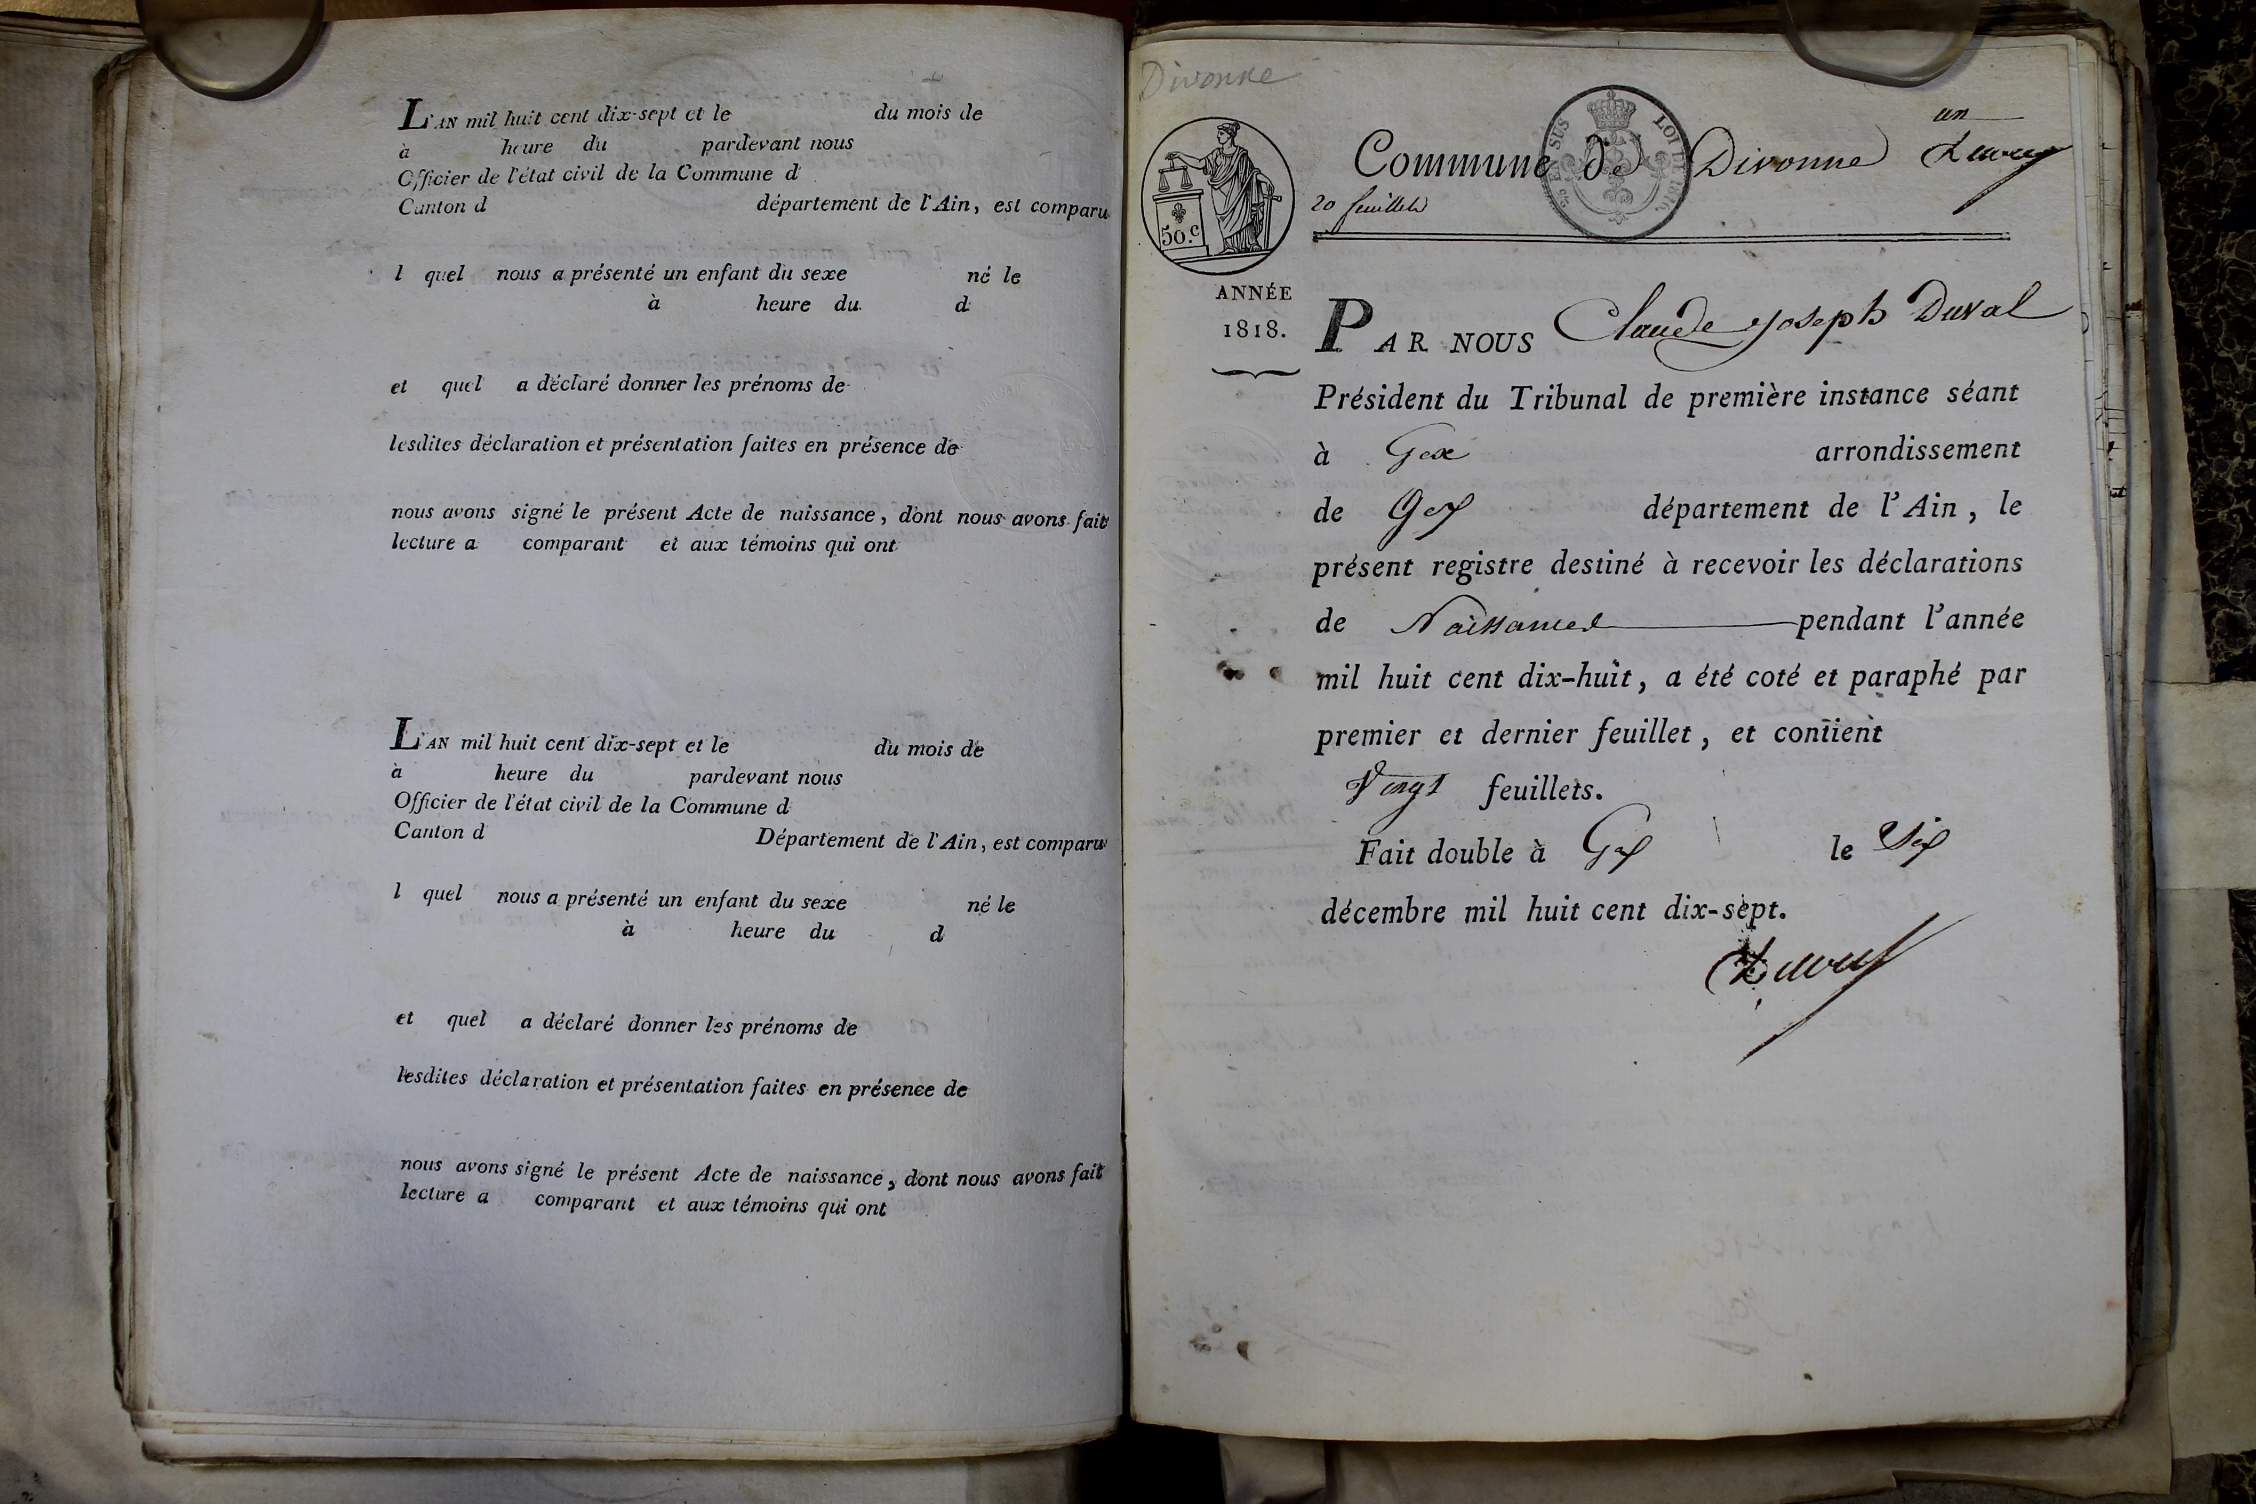 L'AN mil huit cent dix-sept et le du mois de
à heure du pardevant nous
Officier de l'état civil de la Commune d
Canton d département de l'Ain, est comparu
l quel nous a présenté un enfant du sexe né le
à heure du d
et quel a déclaré donner les prénoms de
lesdites déclaration et présentation faites en présence de
nous avons signé le présent Acte de naissance, dont nous avons fait
lecture a comparant et aux témoins qui ont
L'AN mil huit cent dix-sept et le du mois de
à heure du pardevant nous
Officier de l'état civil de la Commune d
Canton d Département de l'Ain, est comparu
l quel nous a présenté un enfant du sexe né le
à heure du d
et quel a déclaré donner les prénoms de
lesdites déclaration et présentation faites en présence de
nous avons signé le présent Acte de naissance, dont nous avons fait
lecture a comparant et aux témoins qui ont
Divonne
un
Commune de Divonne Duval
EN SUS LOI DE 1816.
20 feuillets
50.c
ANNÉE
1818.
PAR NOUS Claude Joseph Duval
Président du Tribunal de première instance séant
à Gex arrondissement
de Gex département de l'Ain, le
présent registre destiné à recevoir les déclarations
de Naissances pendant l'année
mil huit cent dix-huit, a été coté et paraphé par
premier et dernier feuillet, et contient
Vingt feuillets.
Fait double à Gex le Six
décembre mil huit cent dix-sept.
Duval